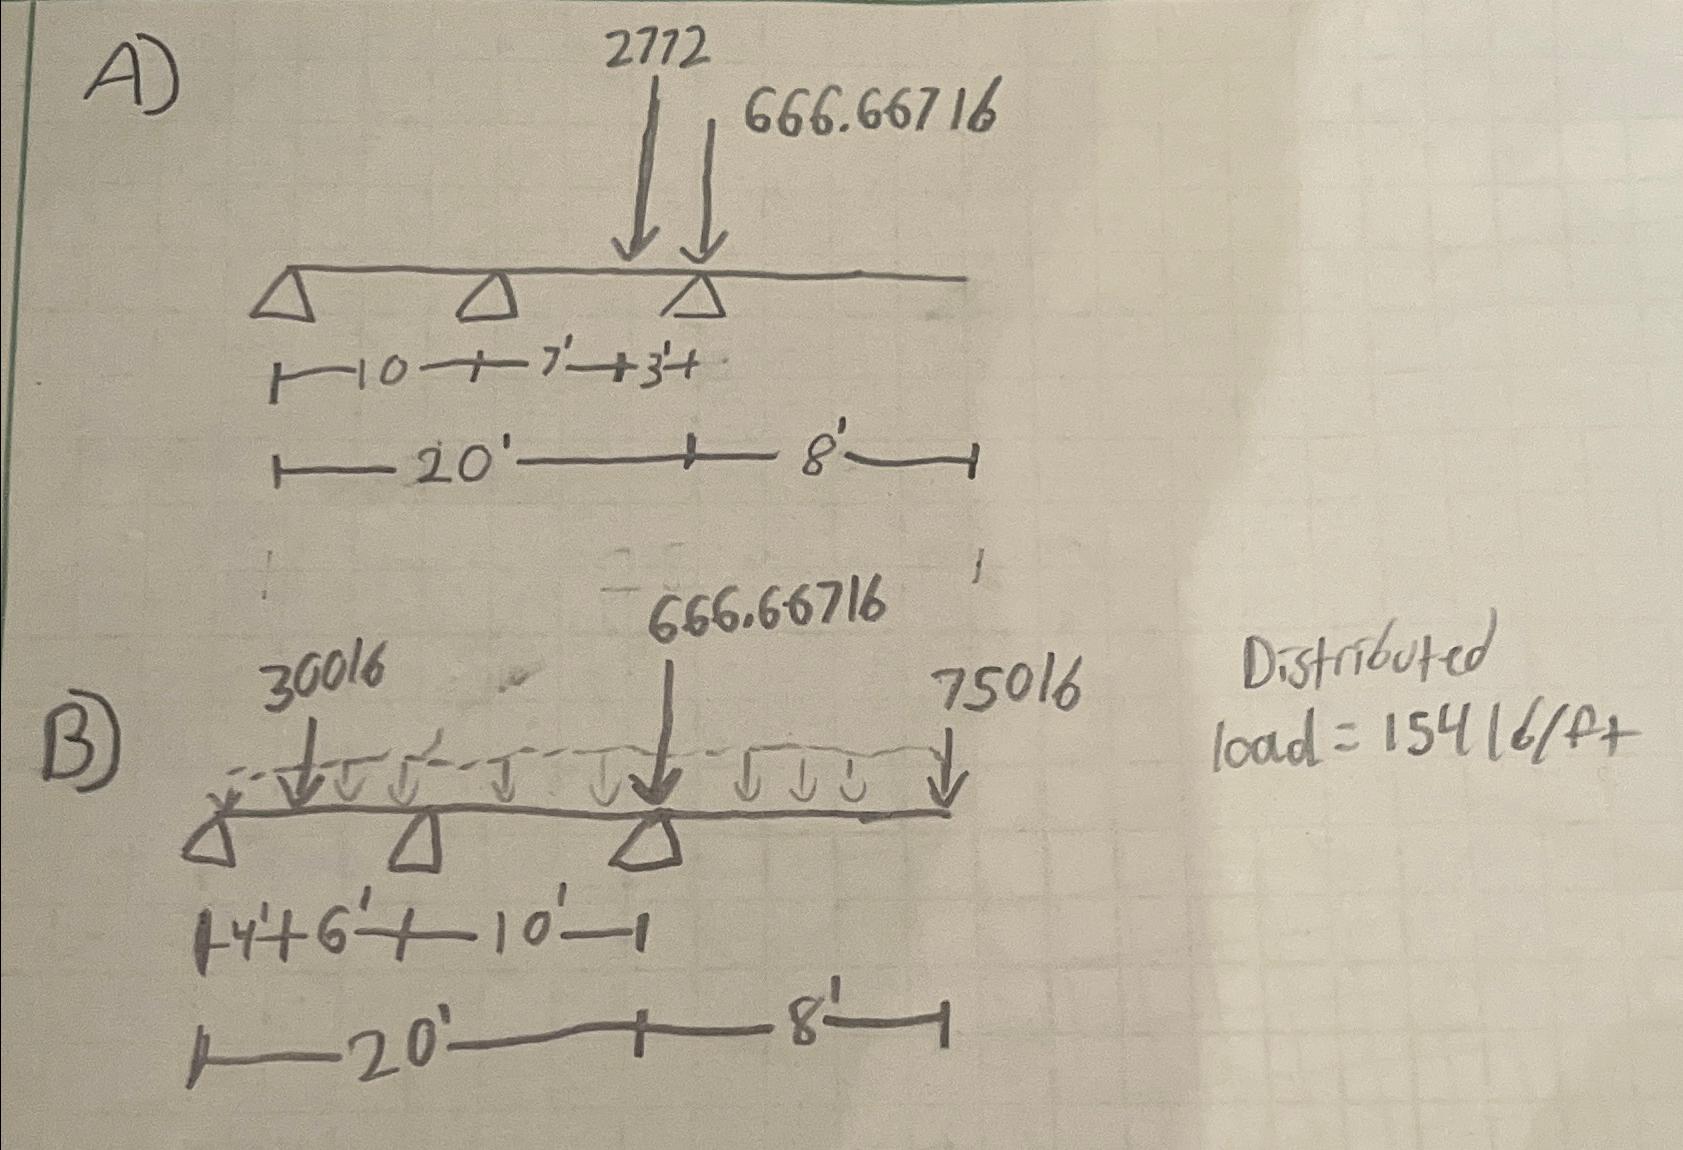 A)
2772
666.667 lb
10 7' 3'
20' 8'
666.667 lb
300 lb
750 lb
Distributed
load = 154 lb/ft
B)
4' 6' 10'
20' 8'